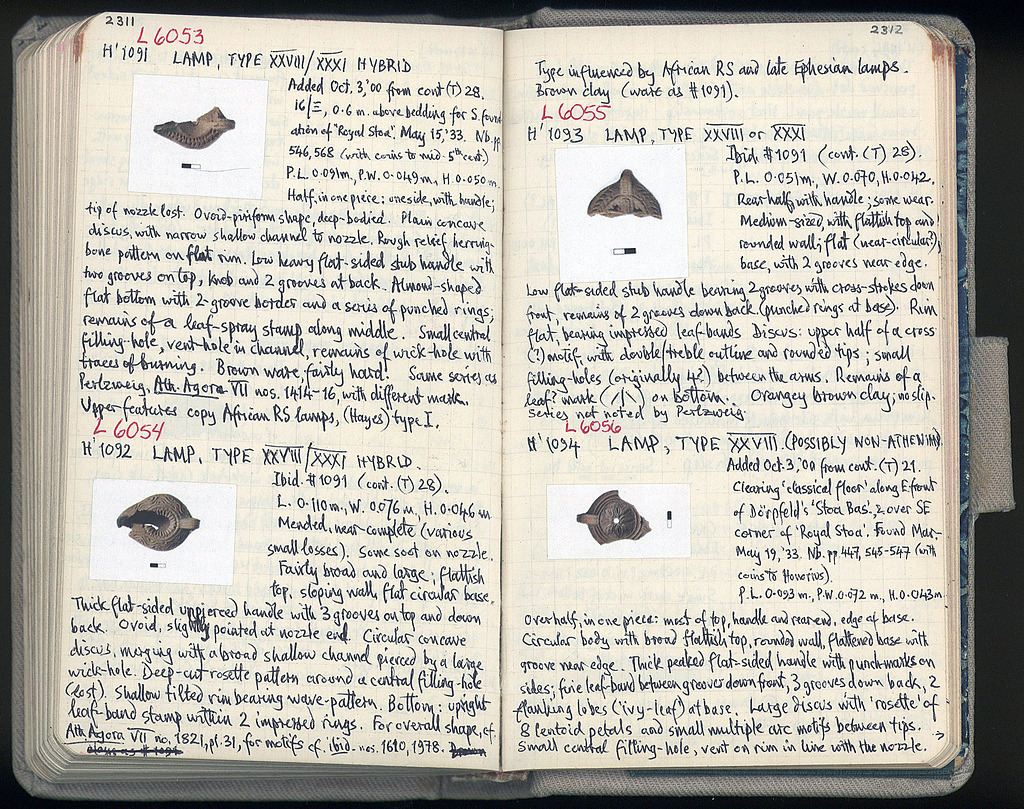 2311
L 6053
H'1091 LAMP, TYPE XXVIII/XXXI HYBRID
Added Oct. 3,'00 from cont (T) 28.
16/Ξ, 0.6 m. above bedding for S. found
ation of 'Royal Stoa', May 15,'33. Nb. pp.
546,568 (with coins to mid-5th cent.)
P.L. 0.091m, P.W. 0.049m, H. 0.050 m.
Half, in one piece: one side, with handle;
tip of nozzle lost. Ovoid-piriform shape, deep-bodied. Plain concave
discus, with narrow shallow channel to nozzle. Rough relief herring-
bone pattern on flat rim. Low heavy flat-sided stub handle with
two grooves on top, knob and 2 grooves at back. Almond-shaped
flat bottom with 2-groove border and a series of punched rings;
remains of a leaf-spray stamp along middle. Small central
filling-hole, vent-hole in channel, remains of wick-hole with
traces of burning. Brown ware, fairly hard. Same series as
Perlzweig, Ath. Agora VII nos. 1414-16, with different mark.
Upper features copy African RS lamps, (Hayes) type I.
L 6054
H'1092 LAMP, TYPE XXVIII/XXXI HYBRID.
Ibid. #1091 (cont. (T) 28).
L. 0.110m, W. 0.076 m, H. 0.046 m
Mended, near-complete (various
small losses). Some soot on nozzle.
Fairly broad and large; flattish
top, sloping wall, flat circular base.
Thick flat-sided unpierced handle with 3 grooves on top and down
back. Ovoid, slightly pointed at nozzle end. Circular concave
discus, merging with a broad shallow channel pierced by a large
wick-hole. Deep-cut rosette pattern around a central filling-hole
(lost). Shallow tilted rim bearing wave-pattern. Bottom: upright
leaf-band stamp within 2 impressed rings. For overall shape, cf.
Ath. Agora VII no. 1821, pl. 31, for motifs cf. ibid. nos. 1610, 1978.
2312
Type influenced by African RS and late Ephesian lamps.
Brown clay (ware as #1091).
L 6055
H'1093 LAMP, TYPE XXVIII or XXXI
Ibid. #1091 (cont. (T) 28).
P.L. 0.051m, W. 0.070, H. 0.042.
Rear half, with handle; some wear.
Medium-sized, with flattish top and
rounded wall; flat (near-circular?)
base, with 2 grooves near edge.
Low flat-sided stub handle bearing 2 grooves with cross-strokes down
front, remains of 2 grooves down back (punched rings at base). Rim
flat, bearing impressed leaf-bands. Discus: upper half of a cross
(?) motif, with double/treble outline and rounded tips; small
filling-holes (originally 4?) between the arms. Remains of a
leaf? mark on bottom. Orangey brown clay; no slip.
Series not noted by Perlzweig
L 6056
H'1094 LAMP, TYPE XXVIII (POSSIBLY NON-ATHENIAN)
Added Oct. 3,'00 from cont. (T) 21.
Clearing 'classical floor' along E front
of Dörpfeld's 'Stoa Bas.' & over SE
corner of 'Royal Stoa'. Found Mar-
May 19,'33. Nb. pp. 447, 545-547 (with
coins to Honorius).
P.L. 0.093 m, P.W. 0.072 m, H. 0.043m.
Over half, in one piece: most of top, handle and rear end, edge of base.
Circular body with broad flattish top, rounded wall, flattened base with
groove near edge. Thick peaked flat-sided handle with punch-marks on
sides; fine leaf-band between grooves down front, 3 grooves down back, 2
flanking lobes ('ivy-leaf') at base. Large discus with 'rosette' of
8 lentoid petals and small multiple arc motifs between tips.
Small central filling-hole, vent on rim in line with the nozzle. →